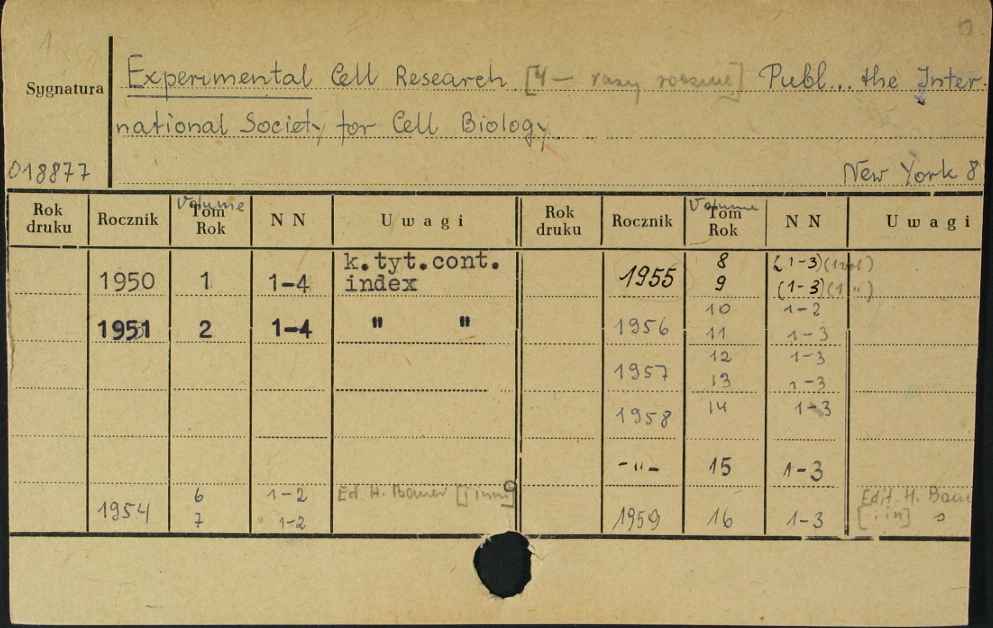 1
Experimental Cell Research [4 – razy rocznie] Publ... the Inter-
Sygnatura
national Society for Cell Biology
018877
New York 8
Rok druku Rocznik Volume Tom Rok N N Uwagi Rok druku Rocznik Volume Tom Rok N N Uwagi
k.tyt.cont.
1950 1 1-4 index
1951 2 1-4 " "
6 1-2 Ed H. [i inni]
1954 7 1-2
8 (1-3) (1 vol)
1955 9 (1-3) (1 ")
10 1-2
1956 11 1-3
12 1-3
1957 13 1-3
1958 14 1-3
-"- 15 1-3
Edit. H.
1959 16 1-3 [i in]